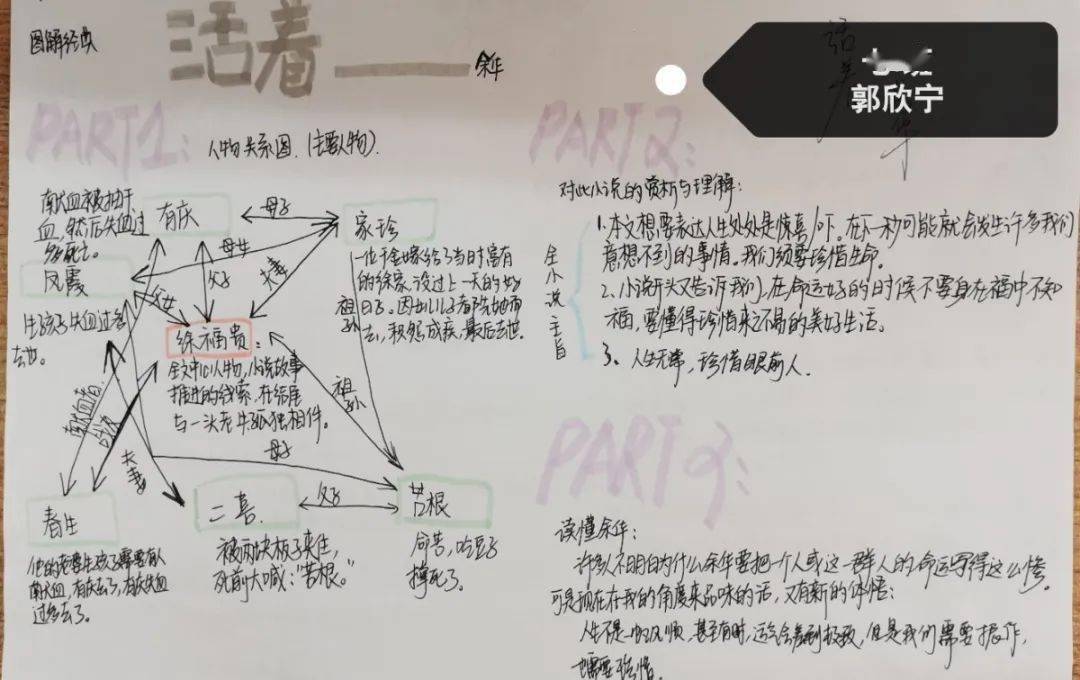 图解经典
活着——余华
郭欣宁
PART1:
人物关系图.(主要人物).
献血被抽干
血,然后失血过
多死亡。
有庆
母子
家珍
凤霞
母女
父子
夫妻
父女
生孩子失血过多
去世。
的徐家,没过上一天的好
去,积怨成疾,最后去世.
祖孙
徐福贵:
全文中心人物,小说故事
推进的线索,在结尾
与一头老牛孤独相伴。
祖孙
献血者
战友
夫妻
母子
春生
二喜.
父子
苦根
他的老婆生孩子需要有人
献血,有庆去了,有庆失血
过多去了。
被两块板子夹住,
死前大喊:"苦根。"
命苦,吃豆子
撑死了。
PART2:
对此小说的赏析与理解:
全小说主旨
1.本文想要表达人生处处是惊喜/吓。在下一秒可能就会发生许多我们
意想不到的事情。我们须要珍惜生命。
2.小说开头又告诉我们,在命运好的时候不要身在福中不知
福,要懂得珍惜来之不易的美好生活。
3、人生无常,珍惜眼前人.
PART3:
读懂余华:
许多人不明白为什么余华要把一个人或这一群人的命运写得这么惨
可是现在在我的角度来品味的话,又有新的体悟:
人生不是一帆风顺,甚至有时,运气会差到极致,但是我们需要振作,
也需要珍惜.